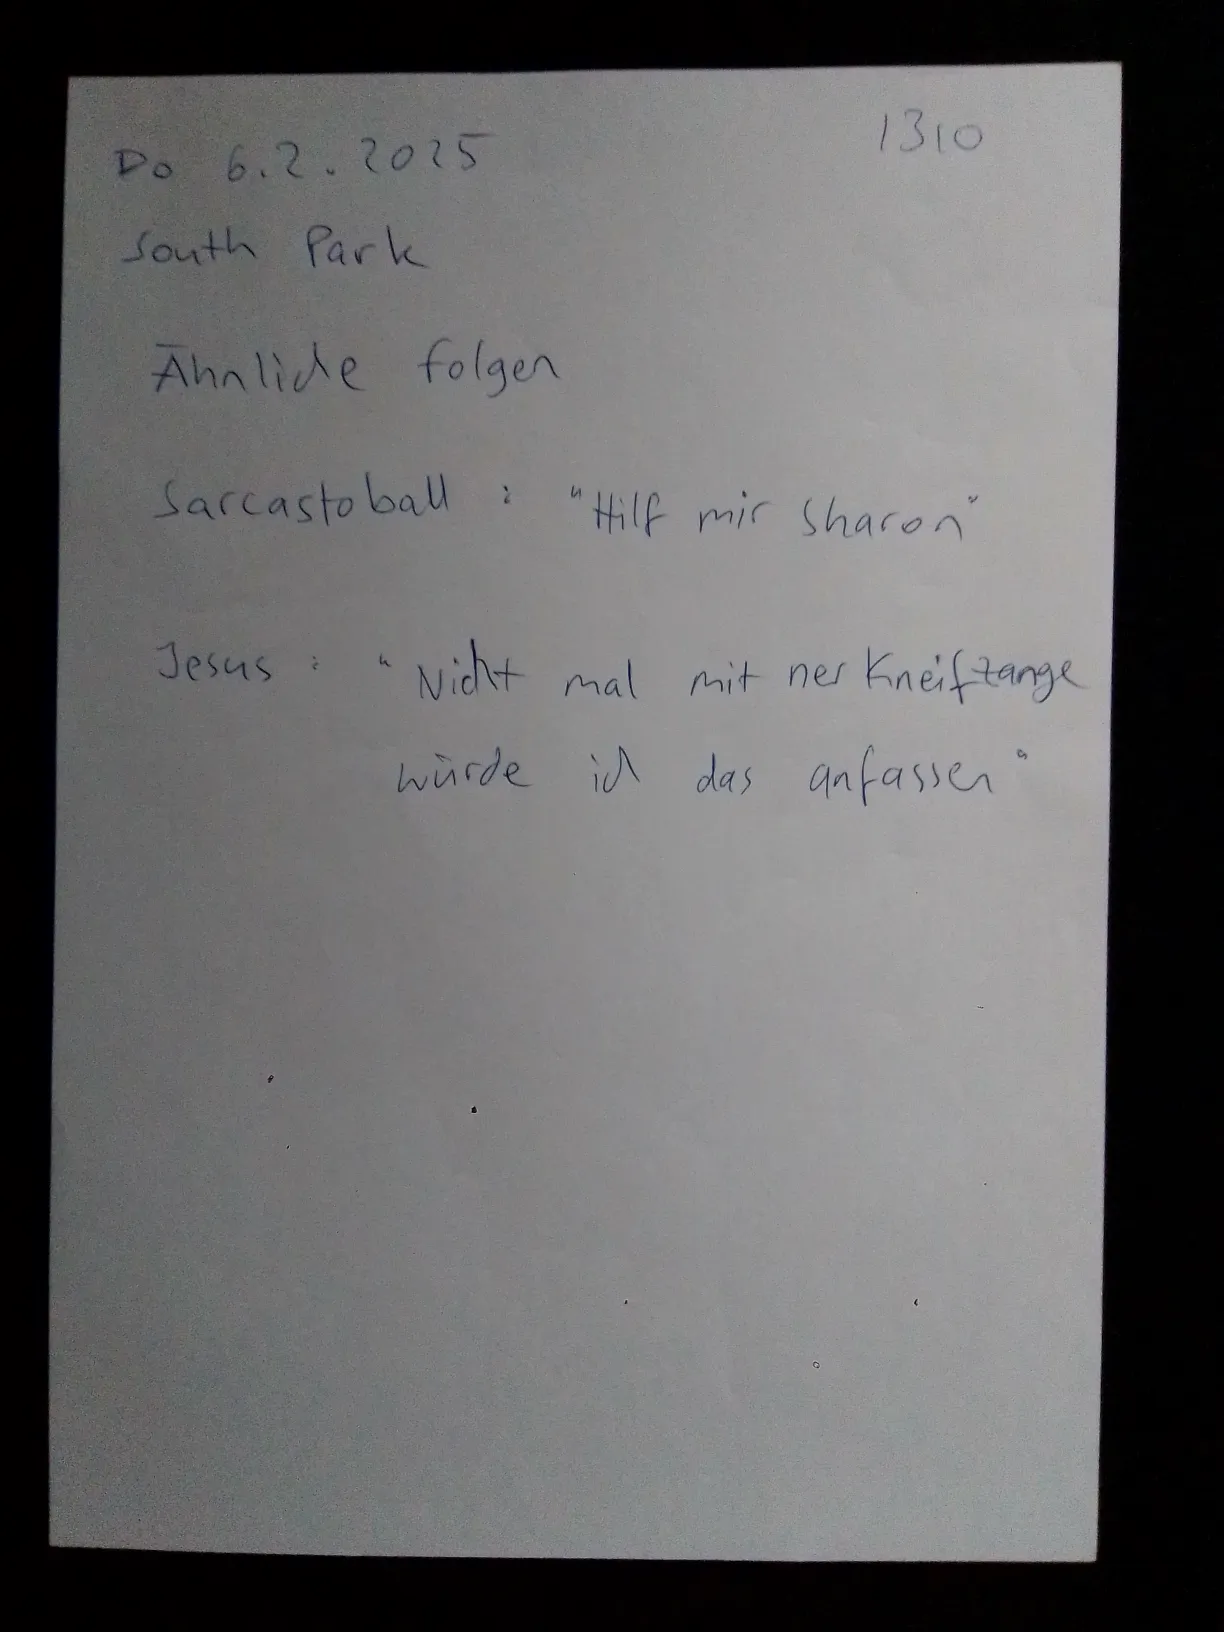 1310
Do 6.2.2025
South Park
Ähnliche folgen
Sarcastoball : "Hilf mir Sharon"
Jesus : "Nicht mal mit ner Kneifzange
würde ich das anfassen"